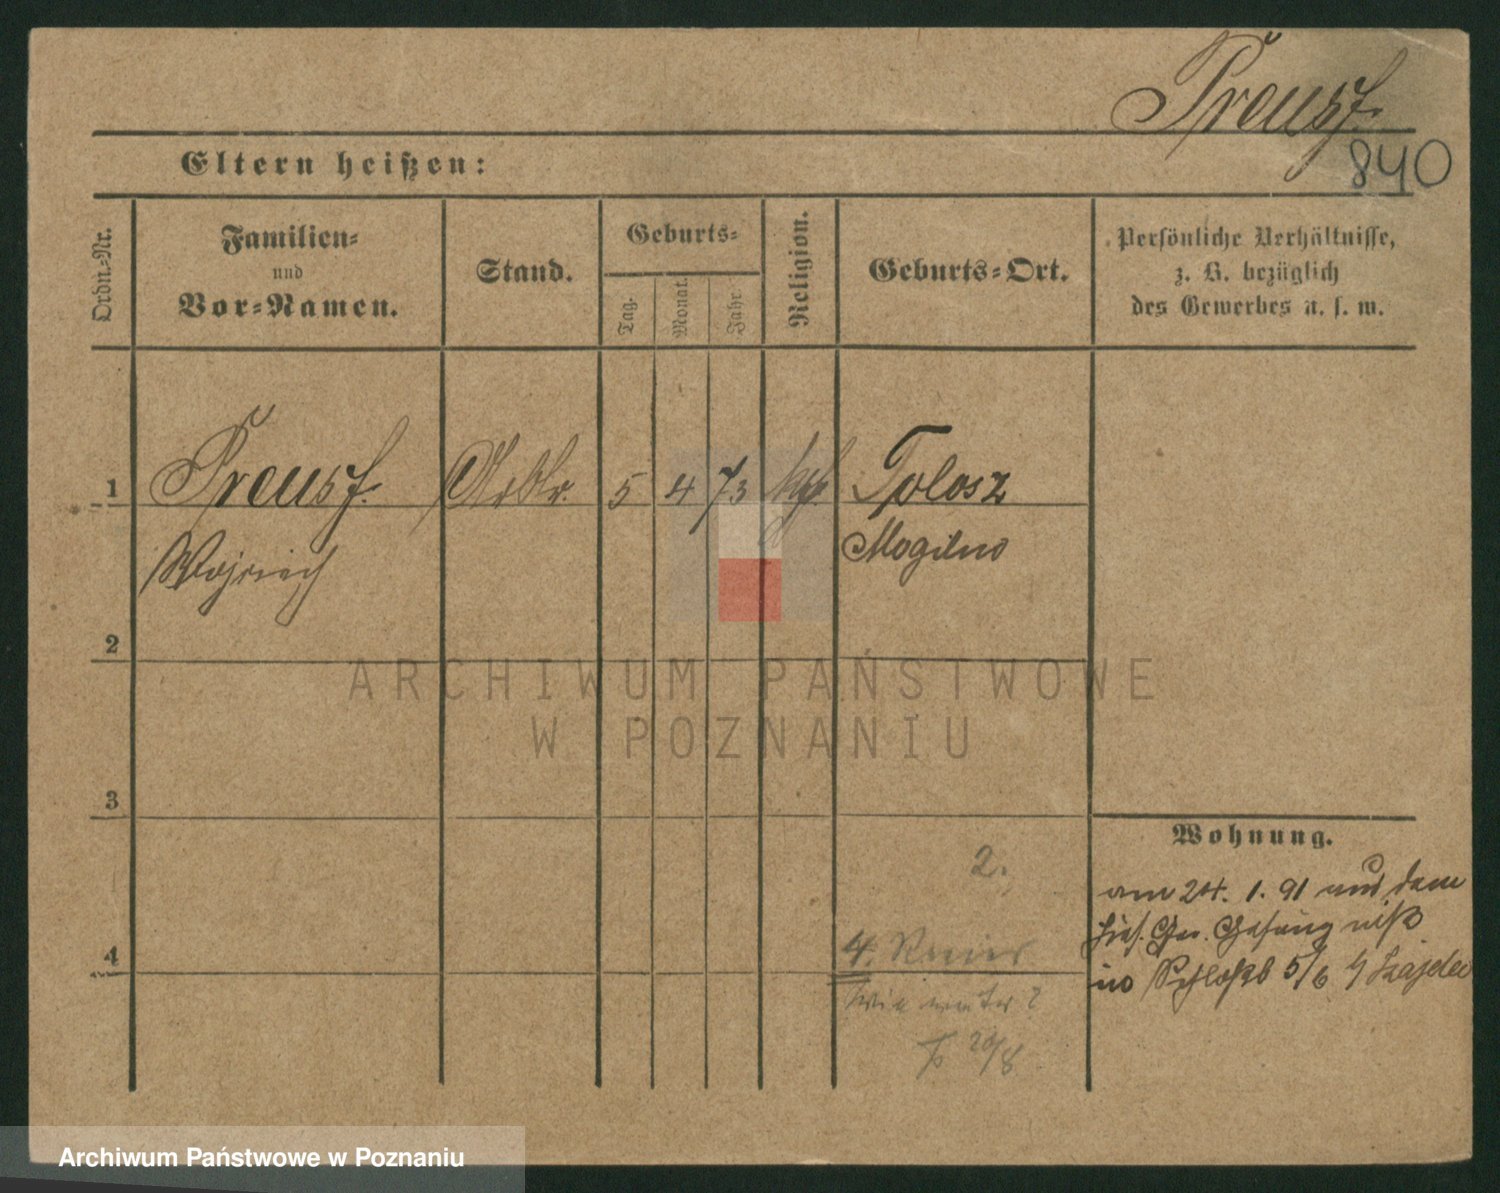 Preuss.
840
Eltern heißen:
Ordn.-Nr.
Familien-
und
Vor-Namen.
Stand.
Geburts-
Tag.
Monat.
Jahr.
Religion.
Geburts-Ort.
Persönliche Verhältnisse,
z. B. bezüglich
des Gewerbes u. s. w.
1
Preuss. Arbtr. 5 4 73 kth. Tolosz
Mogilno
2
ARCHIWUM PAŃSTWOWE
W POZNANIU
3
Wohnung.
2.
am 24. 1. 91 aus dem
hies. Ger. Gefängniß
4
4. Revier
in Schloßstr 5/6
20/8
Archiwum Państwowe w Poznaniu